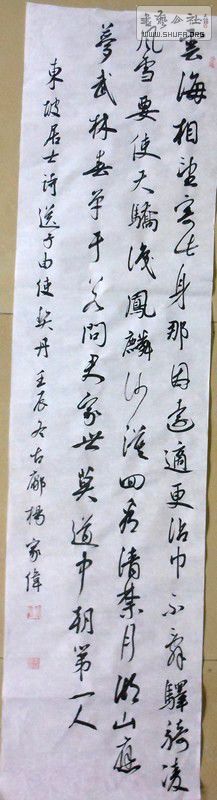 書藝公社
WWW.SHUFA.ORG
雲海相望寄此身那因遠適更沾巾不辞驛騎凌
風雪要使天驕識鳳麟沙漠回看清禁月湖山應
夢武林春單于若問君家世莫道中朝第一人
東坡居士詩送子由使契丹壬辰冬古楊家偉